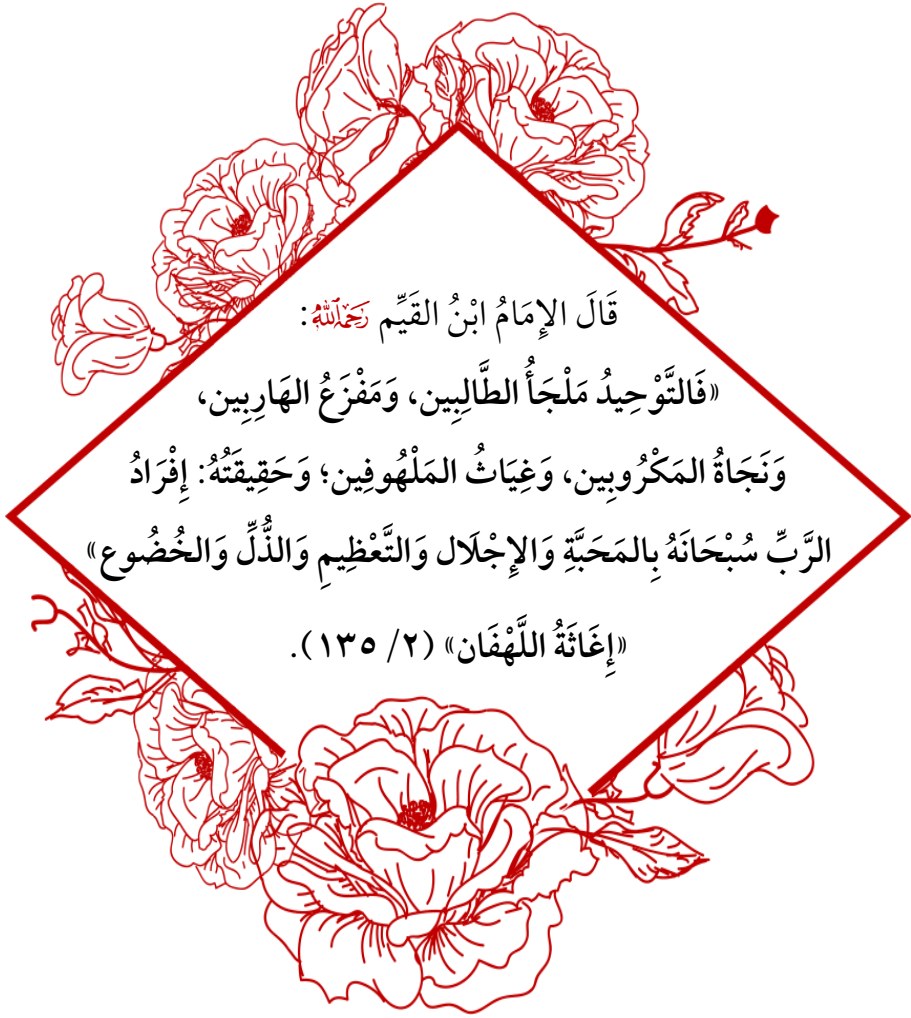 قَالَ الإِمَامُ ابْنُ القَيِّم رَحِمَهُ اللَّهُ:
«فَالتَّوْحِيدُ مَلْجَأُ الطَّالِبِين، وَمَفْزَعُ الهَارِبِين،
وَنَجَاةُ المَكْرُوبِين، وَغِيَاثُ المَلْهُوفِين؛ وَحَقِيقَتُهُ: إِفْرَادُ
الرَّبِّ سُبْحَانَهُ بِالمَحَبَّةِ وَالإِجْلَال وَالتَّعْظِيمِ وَالذُّلِّ وَالخُضُوع»
«إِغَاثَةُ اللَّهْفَان» (٢/ ١٣٥).